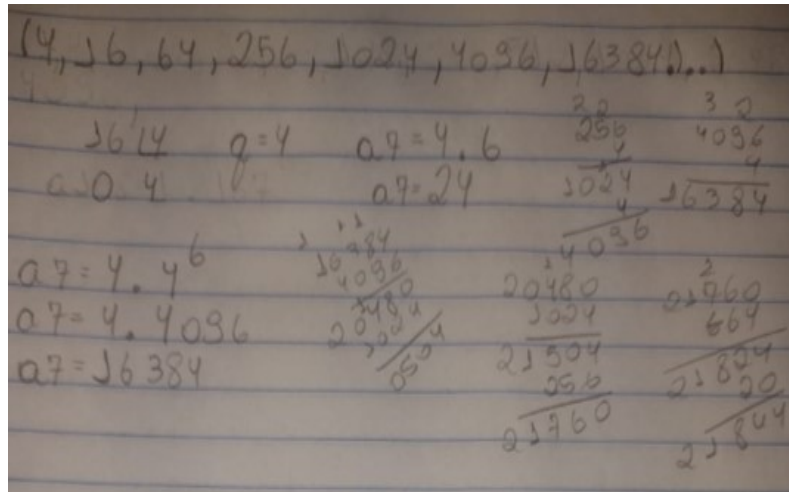 (4, 16, 64, 256, 1024, 4096, 16384...)
16 4 q=4 a7=4.6
0 4 a7=24
256
4
1024
4
4096
3 2
4096
4
16384
a7=4.4^6
a7=4.4096
a7=16384
16384
4096
20480
1024
20480
1024
21504
256
21760
21760
64
21824
20
21844